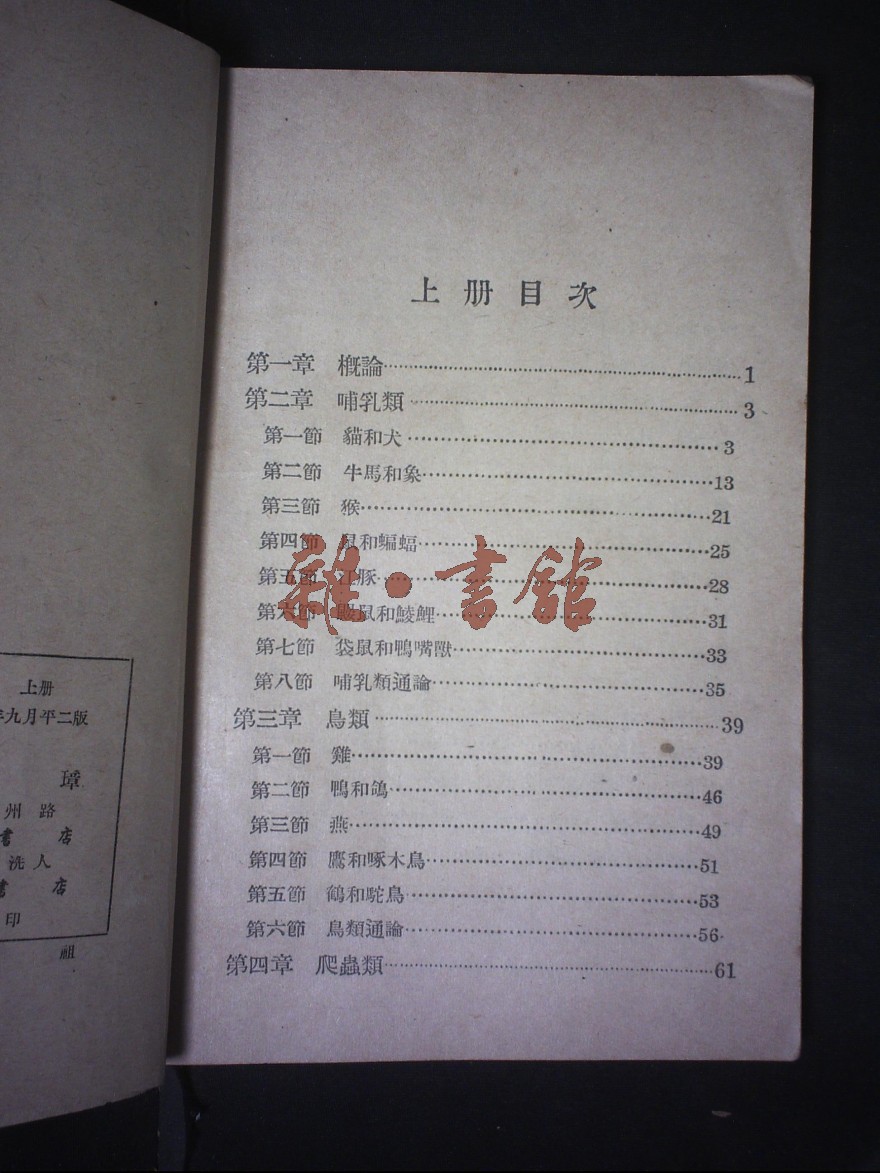 上册目次
第一章 概論 1
第二章 哺乳類 3
第一節 貓和犬 3
第二節 牛馬和象 13
第三節 猴 21
第四節 鼠和蝙蝠 25
第五節 江豚 28
第六節 鼴鼠和鯪鯉 31
第七節 袋鼠和鴨嘴獸 33
第八節 哺乳類通論 35
第三章 鳥類 39
第一節 雞 39
第二節 鴨和鴿 46
第三節 燕 49
第四節 鷹和啄木鳥 51
第五節 鶴和駝鳥 53
第六節 鳥類通論 56
第四章 爬蟲類 61
雜·書館
上册
年九月平二版
璋
州路
書店
洗人
書店
印
祖